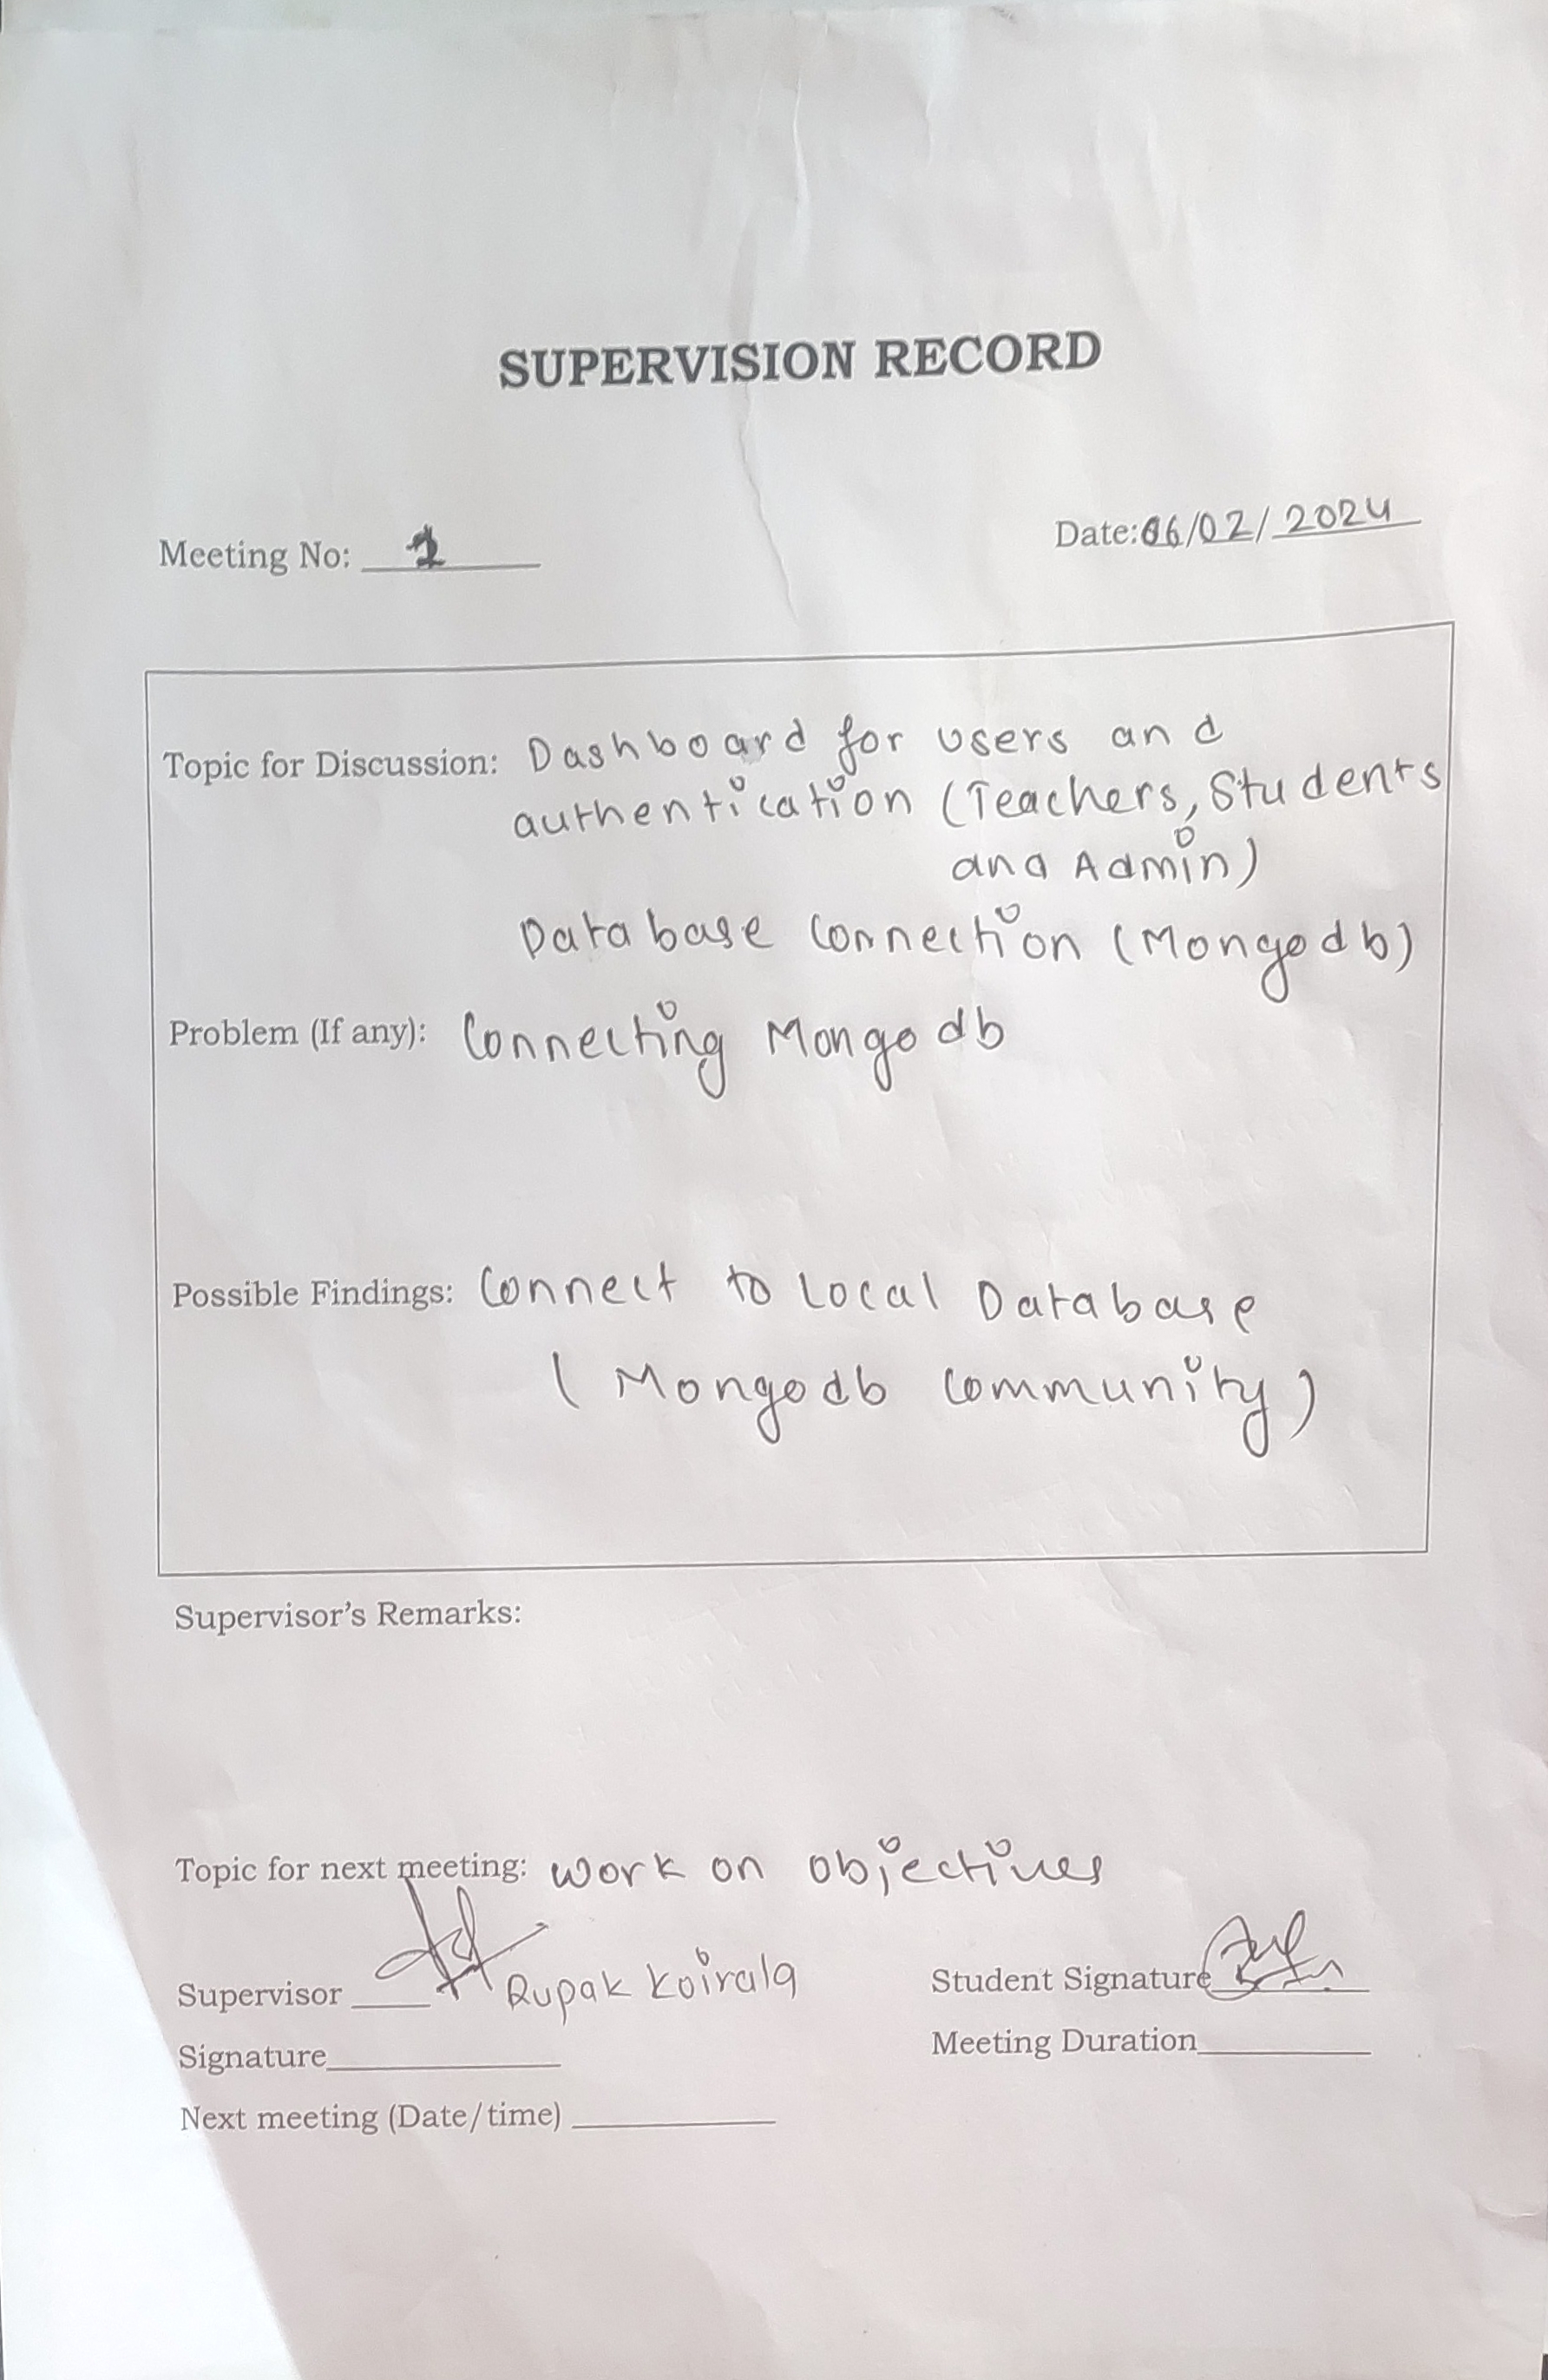 SUPERVISION RECORD
Meeting No:
Date:06/02/2024
Topic for Discussion: Dashboard for users and
authentication (Teachers, Students
and Admin)
Database connection (Mongodb)
Problem (If any): Connecting Mongodb
Possible Findings: Connect to Local Database
(Mongodb community)
Supervisor's Remarks:
Topic for next meeting: work on objectives
Supervisor Rupak Koirala
Student Signature
Signature
Meeting Duration
Next meeting (Date/time)